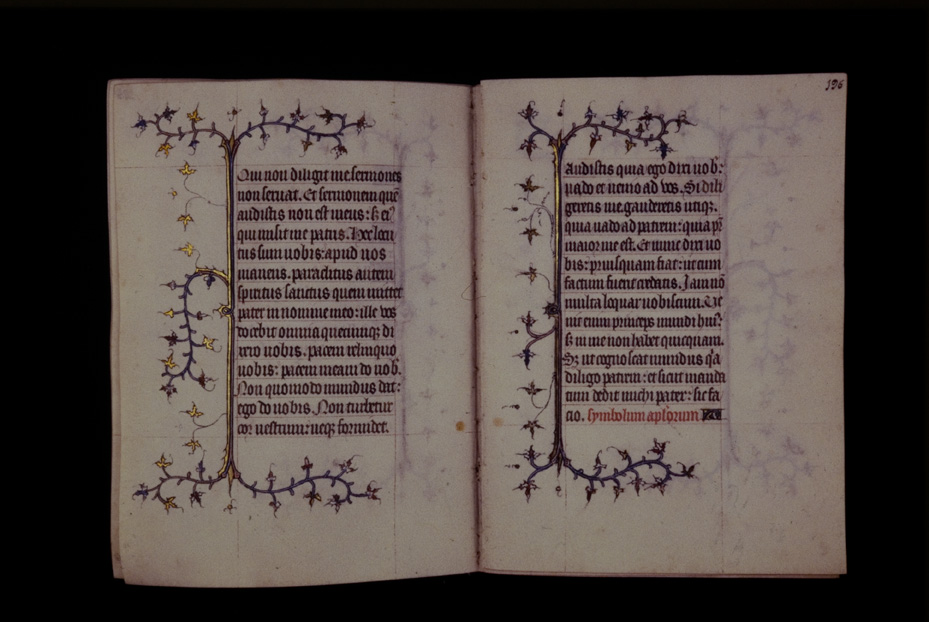 Qui non diligit me sermones
non seruat. Et sermonem quē
audistis non est meus: s; ei⁹
qui misit me patris. Hec locu
tus sum uobis: apud uos
manens. paraclitus autem
spiritus sanctus quem mittet
pater in nomine meo: ille uos
docebit omnia quecumq; di
xero uobis. pacem relinquo
uobis: pacem meam do uob̄.
Non quomodo mundus dat:
ego do uobis. Non turbetur
cor uestrum: neq; formidet.
196
Audistis quia ego dixi uob̄:
uado et uenio ad uos. Si dili
geretis me. gauderetis utiq;.
quia uado ad patrem: quia pr̄
maior me est. Et nunc dixi uo
bis: priusquam fiat: ut cum
factum fuerit credatis. Jam nō
multa loquar uobiscum. Ue
nit enim princeps mundi hui⁹:
& in me non habet quicquam.
S; ut cognoscat mundus q̄a
diligo patrem: et sicut manda
tum dedit michi pater: sic fa
cio. symbolum aplorum